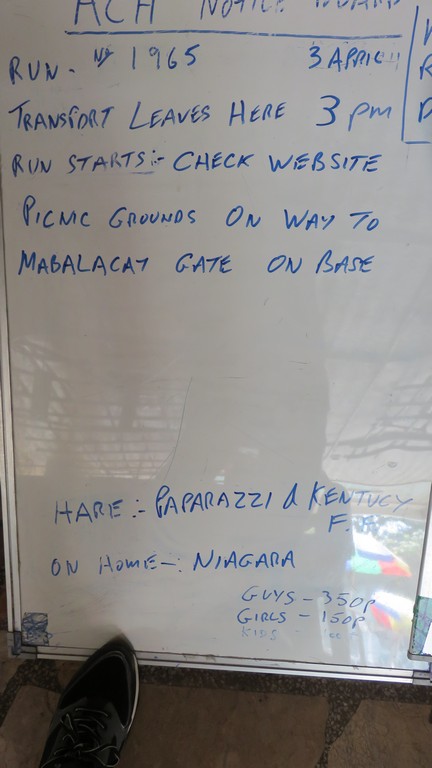 ACH NOTICE BOARD
RUN - No 1965 3 APRIL!!
TRANSPORT LEAVES HERE 3pm
RUN STARTS:- CHECK WEBSITE
PICNIC GROUNDS ON WAY TO
MABALACAY GATE ON BASE
HARE:- PAPARAZZI & KENTUCY
ON HOME-: NIAGARA
GUYS - 350P
GIRLS - 150P
KIDS